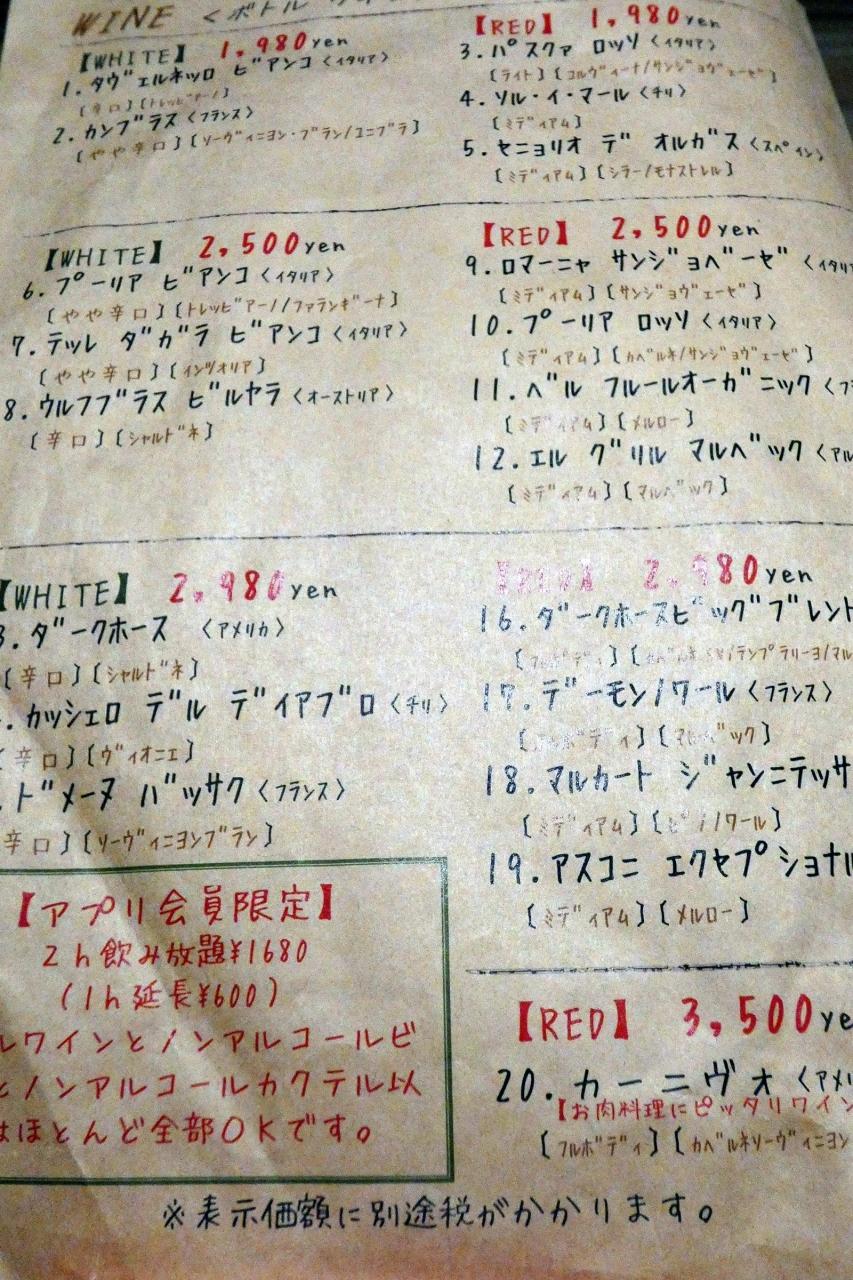 WINE <ボトル
【WHITE】 1,980yen
1.タヴェルネッロ ビアンコ〈イタリア〉
[辛口][トレッビアーノ]
2.カンブラス〈フランス〉
[やや辛口][ソーヴィニヨン・ブラン/ユニブラ]
【RED】 1,980yen
3.パスクァ ロッソ〈イタリア〉
[ライト][コルヴィーナ/サンジョヴェーゼ]
4.ソル・イ・マール〈チリ〉
[ミディアム]
5.セニョリオ デ オルガス〈スペイン〉
[ミディアム][シラー/モナストレル]
【WHITE】 2,500yen
6.プーリア ビアンコ〈イタリア〉
[やや辛口][トレッビアーノ/ファランギーナ]
7.テッレ ダガラ ビアンコ〈イタリア〉
[やや辛口][インツオリア]
8.ウルフブラス ビルヤラ〈オーストリア〉
[辛口][シャルドネ]
【RED】 2,500yen
9.ロマーニャ サンジョベーゼ〈イタリ
[ミディアム][サンジョヴェーゼ]
10.プーリア ロッソ〈イタリア〉
[ミディアム][カベルネ/サンジョヴェーゼ]
11.ベル フルールオーガニック〈フ
[ミディアム][メルロー]
12.エル グリル マルベック〈アル
[ミディアム][マルベック]
【WHITE】 2,980yen
3.ダークホース 〈アメリカ〉
[辛口][シャルドネ]
.カッシェロ デル ディアブロ〈チリ〉
[辛口][ヴィオニエ]
.ドメーヌ バッサク〈フランス〉
辛口][ソーヴィニヨンブラン]
【RED】 2,980yen
16.ダークホースビッグブレンド
[フルボディ][テンプラリーヨ/マル
17.デーモン/ワール〈フランス〉
[フルボディ][マルベック]
18.マルカート ジャンニテッサ
[ミディアム][ピノノワール]
19.アスコニ エクセプショナル
[ミディアム][メルロー]
【アプリ会員限定】
2h飲み放題¥1680
(1h延長¥600)
ルワインとノンアルコールビ
とノンアルコールカクテル以
はほとんど全部OKです。
【RED】 3,500ye
20.カーニヴォ〈アメリ
【お肉料理にピッタリワイン
[フルボディ][カベルネソーヴィニヨン
※表示価額に別途税がかかります。